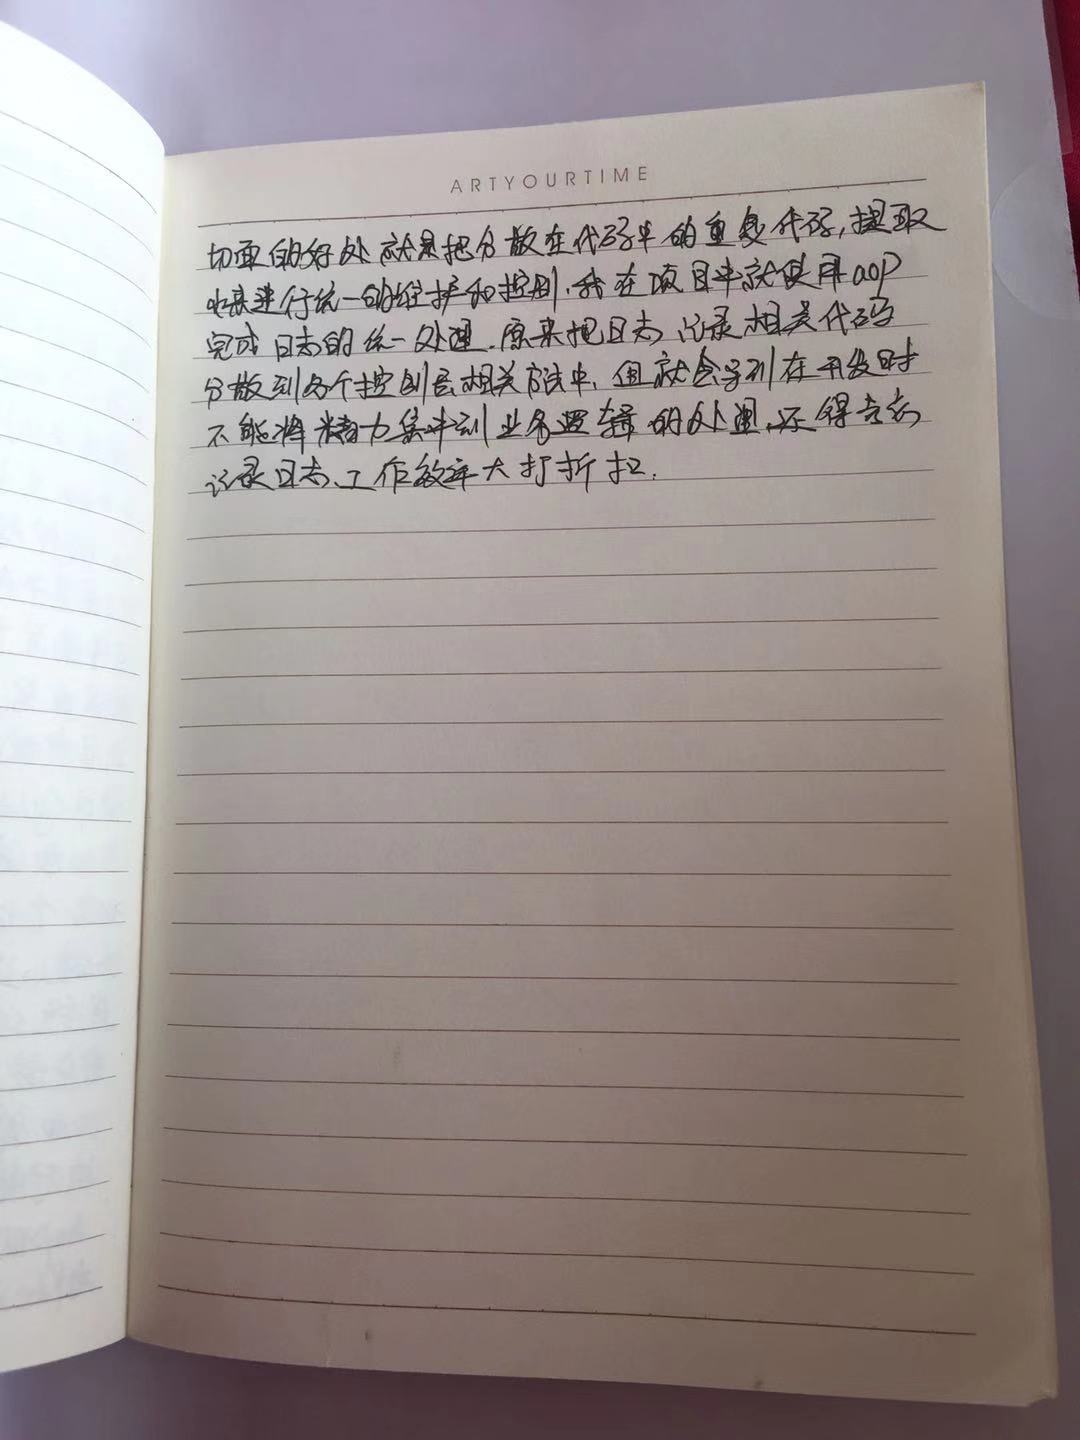 ARTYOURTIME
切面的好处就是把分散在代码中的重复代码,提取
出来进行统一的维护和控制.我在项目中就使用aop
完成日志的统一处理.原来把日志记录相关代码
分散到各个控制层相关方法中,但就会导致在开发时
不能将精力集中到业务逻辑的处理,还得考虑
记录日志、工作效率大打折扣.